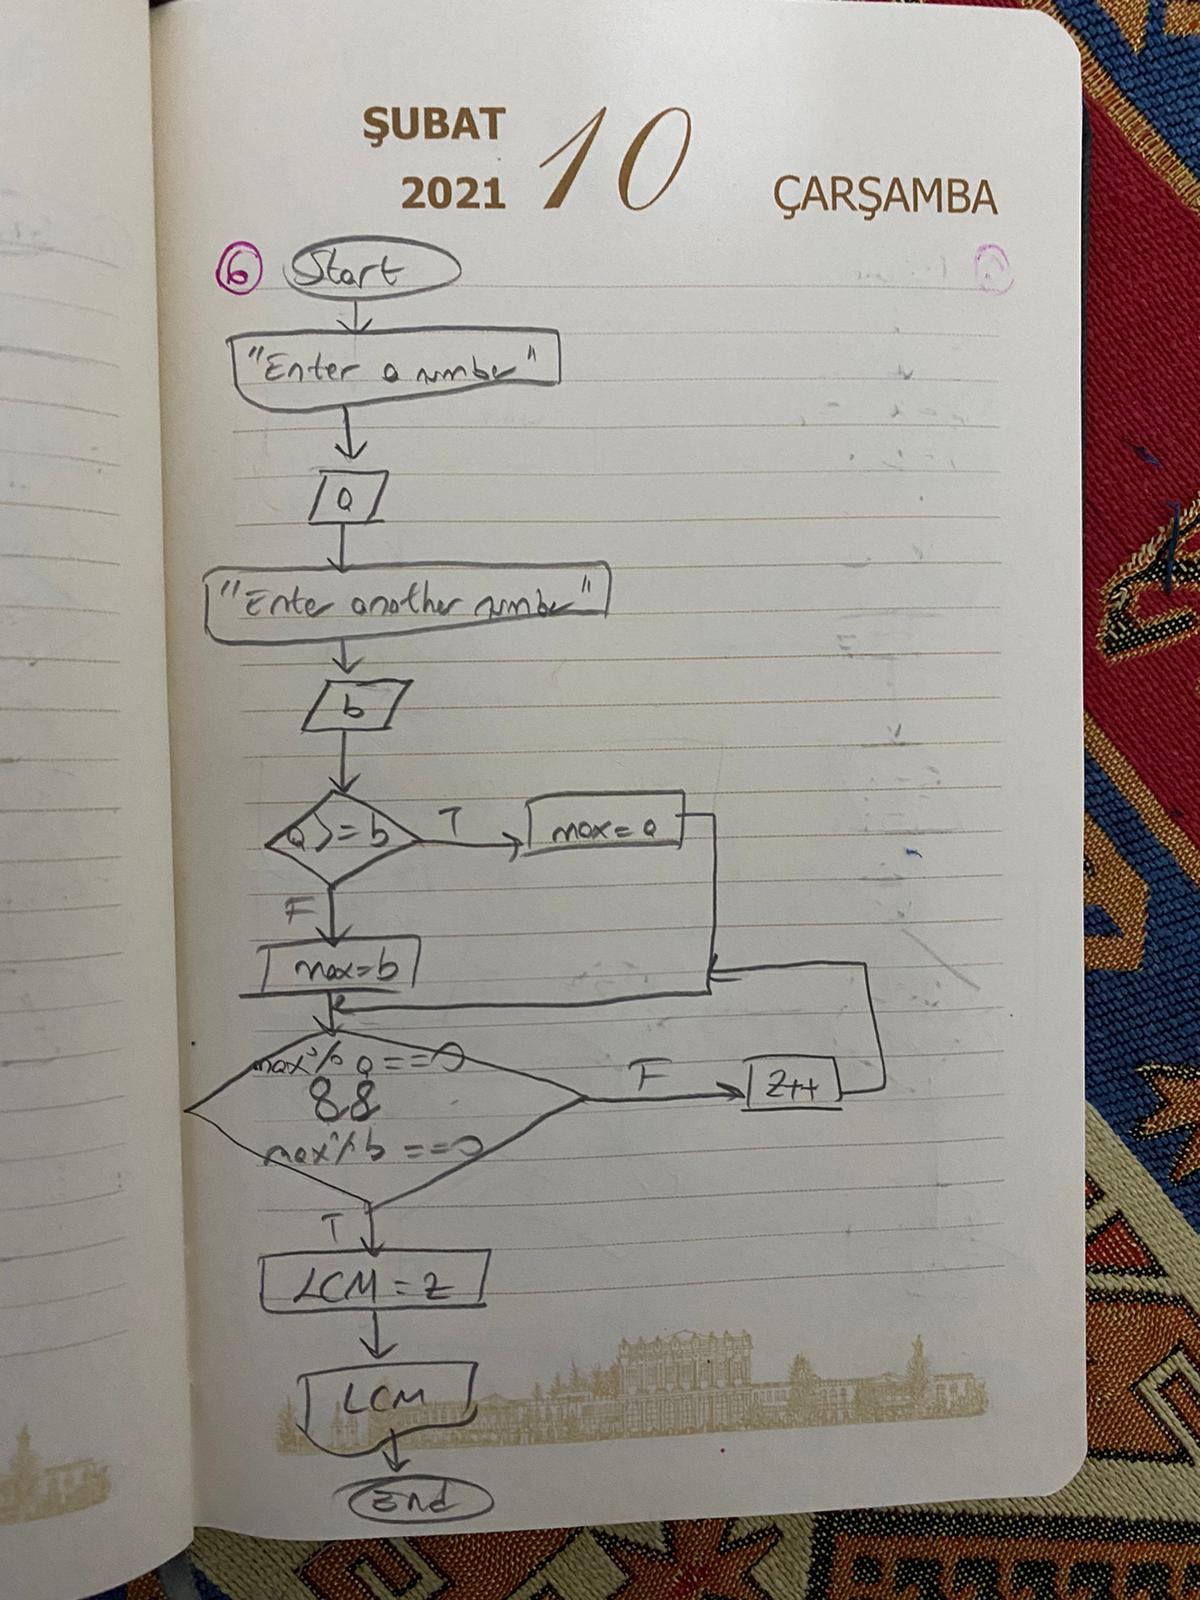 ŞUBAT
2021
10
ÇARŞAMBA
6
Start
"Enter a number"
a
"Enter another number"
b
a >= b
T
max = a
F
max = b
max % a == 0
&&
max % b == 0
F
z++
T
LCM = z
LCM
End